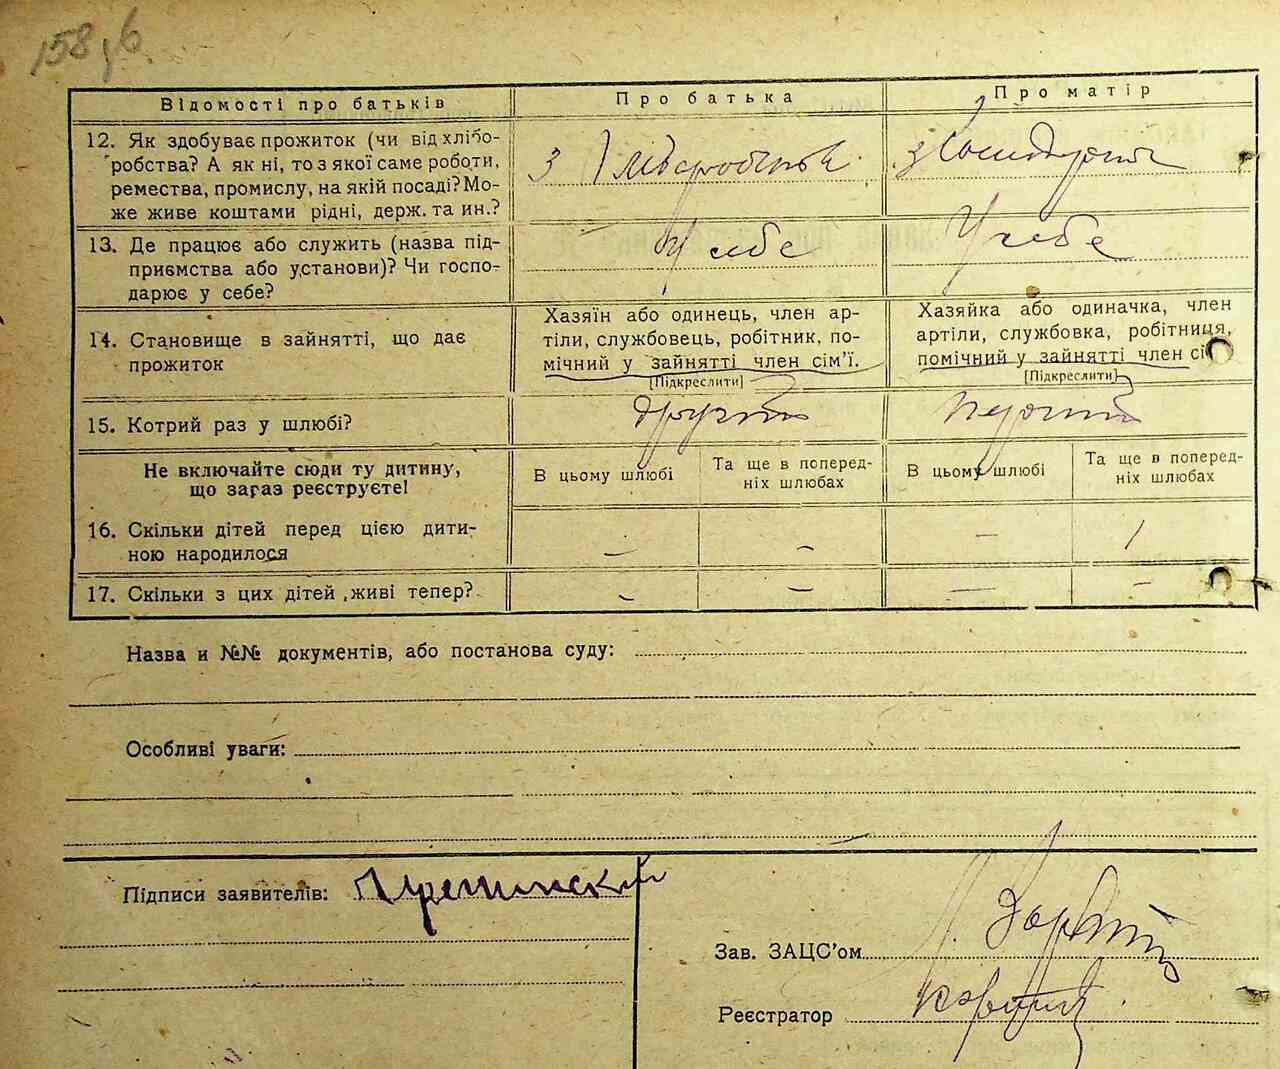 158 зв
Відомості про батьків
Про батька
Про матір
12. Як здобуває прожиток (чи від хлібо-
робства? А як ні, то з якої саме роботи,
ремества, промислу, на якій посаді? Мо-
же живе коштами рідні, держ. та ин.?
З Хліборобства
З Господарства
13. Де працює або служить (назва під-
приємства або установи)? Чи госпо-
дарює у себе?
У себе
У себе
14. Становище в зайнятті, що дає
прожиток
Хазяїн або одинець, член ар-
тіли, службовець, робітник, по-
мічний у зайнятті член сім’ї.
[Підкреслити]
Хазяйка або одиначка, член
артіли, службовка, робітниця,
помічний у зайнятті член сі
[Підкреслити]
15. Котрий раз у шлюбі?
другий
первий
Не включайте сюди ту дитину,
що зараз реєструєте!
В цьому шлюбі
Та ще в поперед-
ніх шлюбах
В цьому шлюбі
Та ще в поперед-
ніх шлюбах
16. Скільки дітей перед цією дити-
ною народилося
– – – 1
17. Скільки з цих дітей живі тепер?
– – – –
Назва и №№ документів, або постанова суду:
Особливі уваги:
Підписи заявителів:
Зав. ЗАЦС’ом
Реєстратор